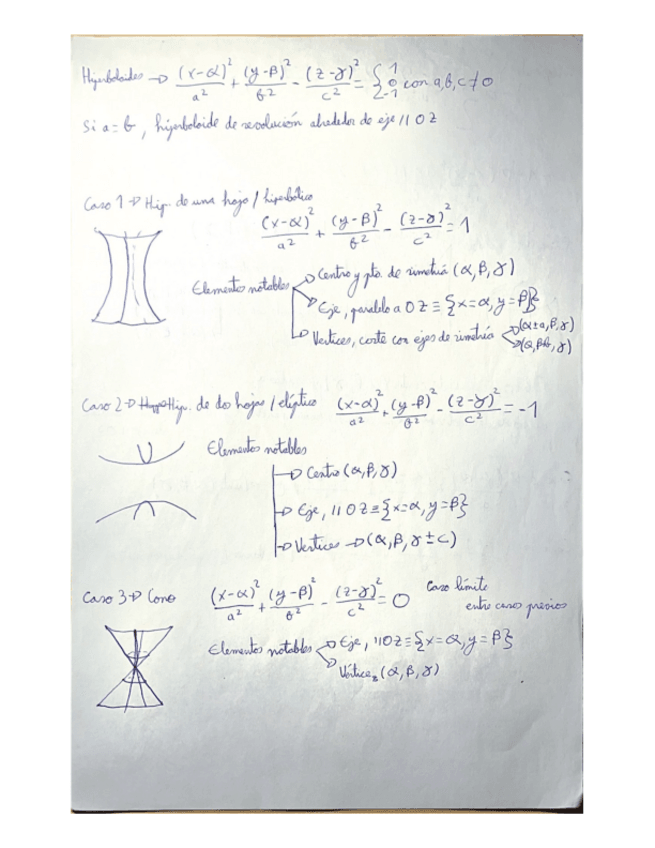 Hiperboloides → (x-α)²/a² + (y-β)²/b² - (z-γ)²/c² = { 1 0 -1 con a,b,c ≠ 0
Si a = b, hiperboloide de revolución alrededor de eje // OZ
Caso 1 → Hip. de una hoja / hiperbólico
(x-α)²/a² + (y-β)²/b² - (z-γ)²/c² = 1
Elementos notables
Centro y pto. de simetría (α, β, γ)
Eje, paralelo a OZ ≡ {x=α, y=β}
Vertices, corte con ejes de simetría (α±a, β, γ)
Caso 2 → Hip. de dos hojas / elíptico (x-α)²/a² + (y-β)²/b² - (z-γ)²/c² = -1
Elementos notables
→ Centro (α, β, γ)
→ Eje, // OZ ≡ {x=α, y=β}
→ Vertices → (α, β, γ ± c)
Caso 3 → Cono (x-α)²/a² + (y-β)²/b² - (z-γ)²/c² = 0 Caso límite
entre casos previos
Elementos notables
Eje, // OZ ≡ {x=α, y=β}
Vértice (α, β, γ)